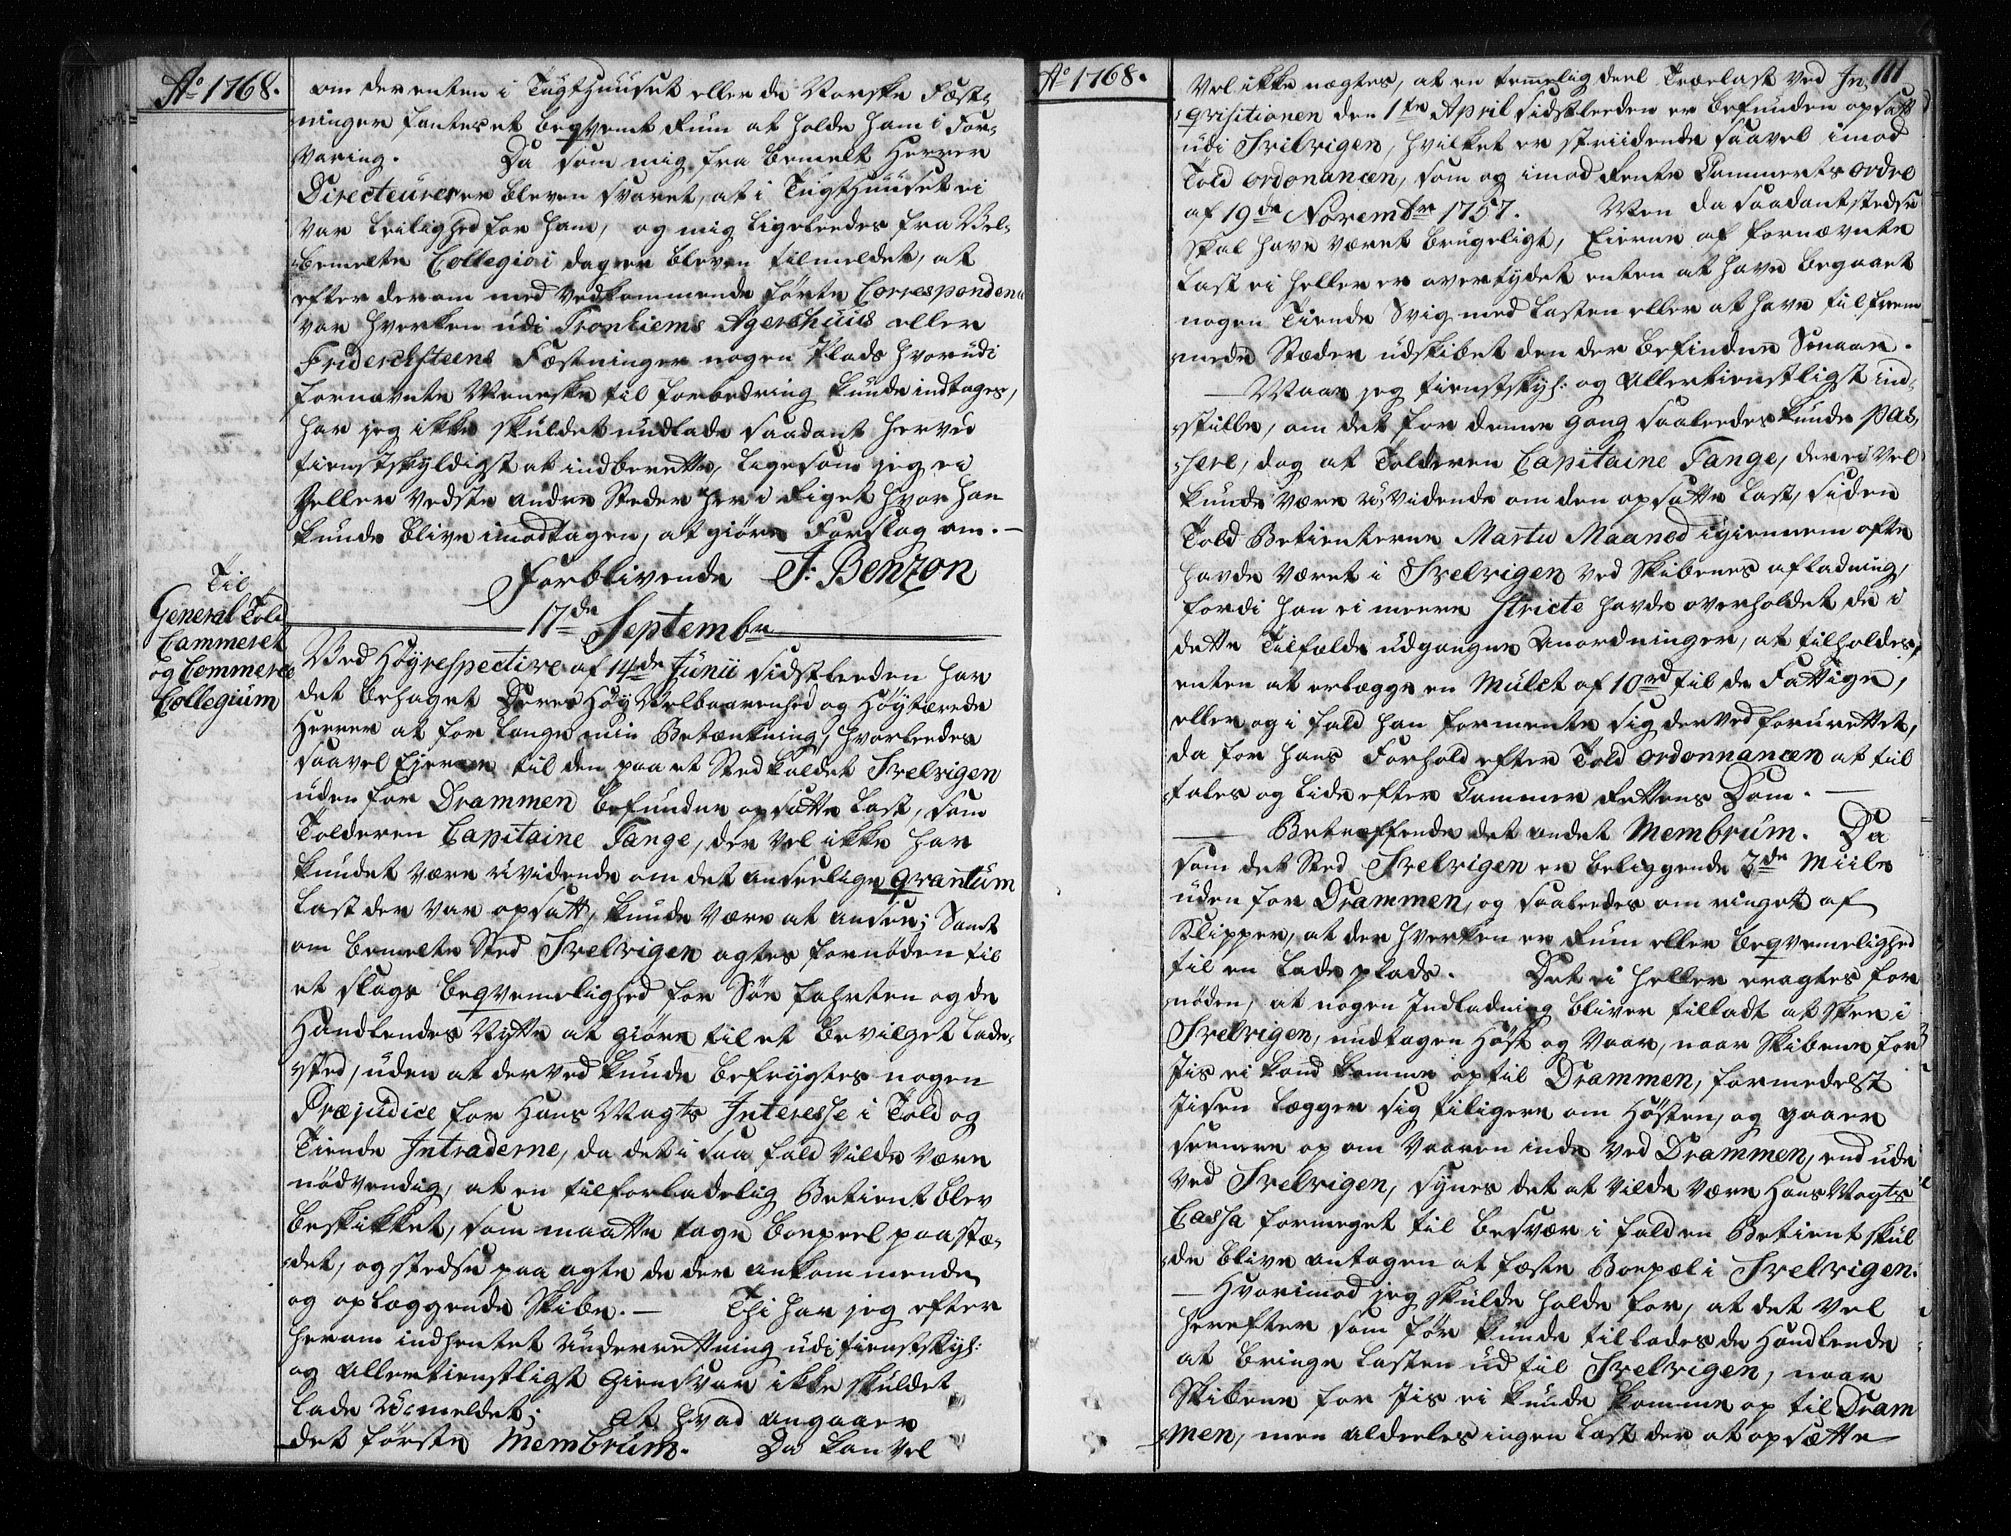 Ao 1768.
om der enten i Tugthuuset eller de Norske Fæst-
ninger fantes et beqvemt Rum at holde ham i For-
varing. Da som mig fra bemelte Herrer
Directeurer er bleven svaret, at i Tugthuuset ei
var Leilighed for ham, og mig ligeleedes fra Vel-
bemelte Collegio i dag er bleven tilmeldet, at
efter derom med Vedkommende førte Correspondence
var hverken udi Tronhiems Agershuus eller
Friderichsteens Fæstninger nogen Plads hvorudi
fornævnte Menneske til forbedring kunde indtages,
har jeg ikke skuldet undlade saadant herved
tienstskyldigst at indberette, ligesom jeg ei
heller vedste andre Steder her i Riget hvor han
kunde blive imodtagen, at giøre Forslag om. —
Forblivende J: Benzon
17de Septembr
Til
General Told
Cammeret
og Commerce
Collegium
Ved Høyrespective af 14de Junii sidstleeden har
det behaget Deres Høy Velbaarenhed og Høytærede
Herrer at forlange min Betænkning, hvorleedes
saavel Ejerne til den paa et Sted kaldet Svelvigen
uden for Drammen befundne opsatte Last, som
Tolderen Capitaine Tange, der vel ikke har
kundet være uvidende om det anseelige qvantum
Last der var opsatt, kunde være at ansee; Samt
om bemelte Sted Svelvigen agtes fornøden til
et slags beqvemelighed for Søe farten og de
Handlendes Nytte at giøre til et bevilget Lade-
sted, uden at derved kunde befrygtes nogen
Præjudice for Hans Mayts Interesse i Told og
Tiende Intraderne, da det i saa fald vilde være
nødvendig, at en tilforladelig Betient blev
beskikket, som maatte tage boepæl paa stæ-
det, og stedse paa agte de der ankommende
og oplæggende Skibe. — Thi har jeg efter
herom indhentet Underrettning udi tienstskyl:
og allertienstligst Giensvar ikke skuldet
lade Uormeldet; At hvad angaaer
det første Membrum. Da kan vel
Ao 1768.
111
vel ikke nægtes, at en temmelig deel Trælast ved In-
qvisitionen den 1te April sidstleeden er befunden opsatt
udi Svelvigen, hvilket er striidende saavel imod
Told ordonancen, som og imod Rente Cammerets ordre
af 19de Novembr 1757. Men da saadant stedse
skal have været brugeligt, Eierne af fornævnte
Last ei heller er overtydet enten at have begaaet
nogen Tiende Svig med Lasten eller at have til frem-
mede Stæder udskibet den der befindne Svaar.
— Maae jeg tienstskyl: og Allertienstligst ind-
stille, om det for denne gang saaleedes kunde pas-
sere, dog at Tolderen Capitaine Tange, der ei vel
kunde være uvidende om den opsatte Last, siden
Told Betienterne Martii Maaned igiennem ofte
havde været i Svelvigen ved Skibenes afladning,
fordi han ei meere stricte havde overholdet de i
dette Tilfælde udgangne Anordninger, at tilholdes,
enten at erlægge en Mulct af 10rd til de Fattige,
eller og i fald han formente sig derved forurettet,
da for hans Forhold efter Told ordonnancen at til-
tales og lide efter Cammer Rettens Dom. —
— Betreffende det andet Membrum. Da
som det Sted Svelvigen er beliggende 3de Miile
uden for Drammen, og saaleedes om ringet af
Klipper, at der hverken er Rum eller beqvemelighed
til en Lade plads. Det ei heller eragtes for
nøden, at nogen Indladning bliver tilladt at skee i
Svelvigen, undtagen Høst og Vaar, naar Skibene for
Iis ei kand komme op til Drammen, formedelst
Iisen lægger sig tiligere om Høsten, og gaaer
seenere op om Vaaren inde ved Drammen, end ude
ved Svelvigen, synes det at vilde være Hans Mayts
Cassa formeget til besvær i fald en Betient skul-
de blive antagen at fæste Boepæl i Svelvigen.
— Hvorimod jeg skulde holde for, at det vel
herefter som før kunde tillades de Handlende
at bringe Lasten ud til Svelvigen, naar
Skibene for Iis ei kunde komme op til Dram
men, men aldeeles ingen Last der at opsætte